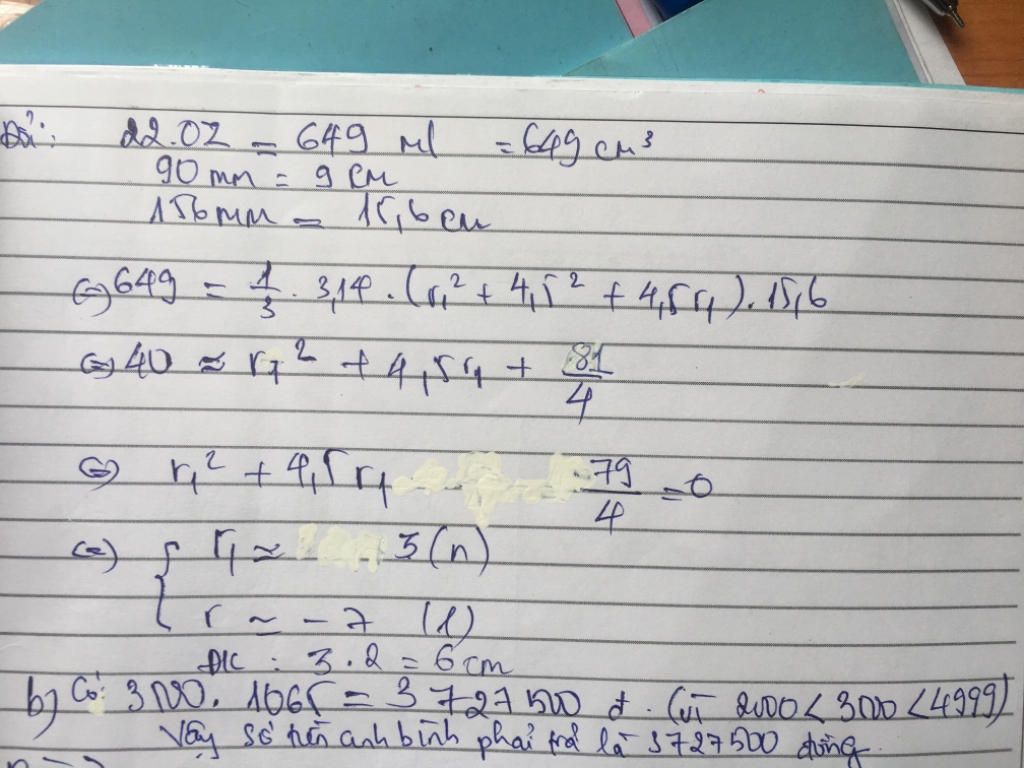 Đổi: 22.OZ = 649 ml = 649 cm³
90 mm = 9 cm
156mm = 15,6 cm
⇔ 649 = 1/3 . 3,14 . (r₁² + 4,5² + 4,5r₁) . 15,6
⇔ 40 ≈ r₁² + 4,5r₁ + 81/4
⇔ r₁² + 4,5r₁ - 79/4 = 0
⇔ { r₁ ≈ 3 (n)
r ≈ -7 (l)
ĐK : 3 . 2 = 6 cm
b) Có: 3500. 1065 = 3 727 500 đ. (vì 2000 < 3500 < 4999)
Vậy số tiền anh bình phải trả là 3727500 đồng.